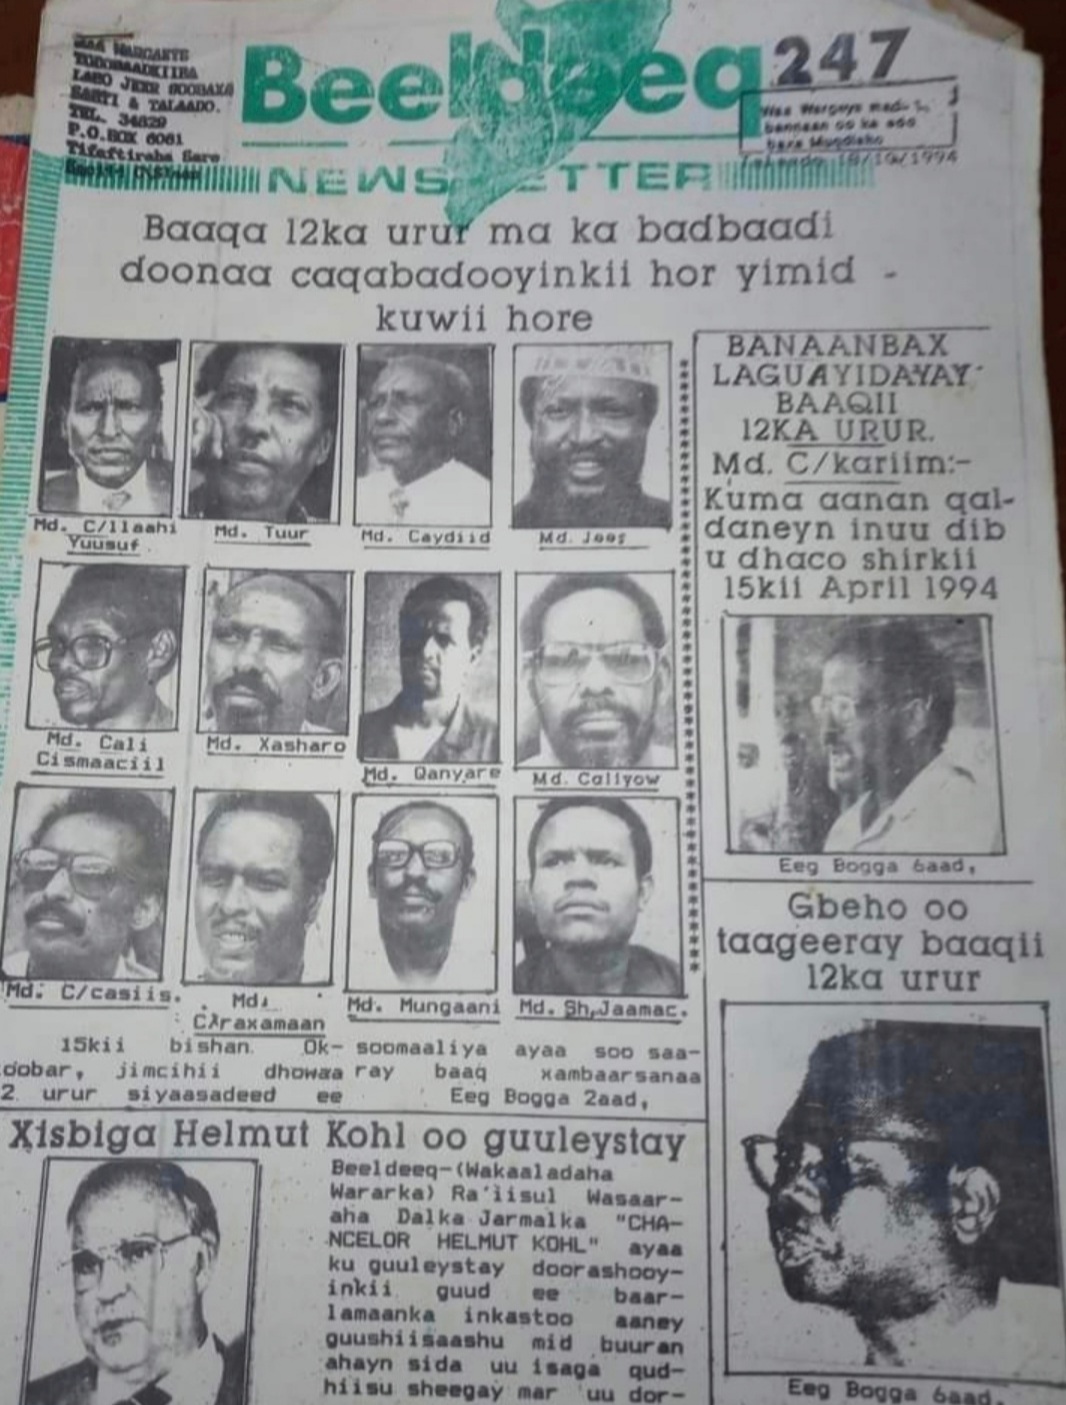 WAA WARGAKYS
TODOBAADKIIBA
LABO JEER SOOBAXA
SABTI & TALAADO.
TEL. 34829
P.O.BOX 6061
Tifaftiraha Sare
Beeldeeq
247
Waa Wargays madi-
bannaan oo ka soo
baxa Muqdisho
18/10/1994
NEWSLETTER
Baaqa 12ka urur ma ka badbaadi
doonaa caqabadooyinkii hor yimid -
kuwii hore
Md. C/llaahi
Yuusuf
Md. Tuur
Md. Caydiid
Md. Jees
Md. Cali
Cismaaciil
Md. Xasharo
Md. Qanyare
Md. Caliyow
Md. C/casiis.
Md.
C/raxamaan
Md. Mungaani
Md. Sh,Jaamac.
15kii bishan Ok-
oobar, jimcihii dhowaa
2 urur siyaasadeed ee
soomaaliya ayaa soo saa-
ray baaq xambaarsanaa
Eeg Bogga 2aad,
BANAANBAX
LAGUAYIDAYAY
BAAQII
12KA URUR.
Md. C/kariim:-
Kuma aanan qal-
daneyn inuu dib
u dhaco shirkii
15kii April 1994
Eeg Bogga 6aad,
Gbeho oo
taageeray baaqii
12ka urur
Eeg Bogga 6aad,
Xisbiga Helmut Kohl oo guuleystay
Beeldeeq-(Wakaaladaha
Wararka) Ra'iisul Wasaar-
aha Dalka Jarmalka "CHA-
NCELOR HELMUT KOHL" ayaa
ku guuleystay doorashooy-
inkii guud ee baar-
lamaanka inkastoo aaney
guushiisaashu mid buuran
ahayn sida uu isaga qud-
hiisu sheegay mar uu dor-